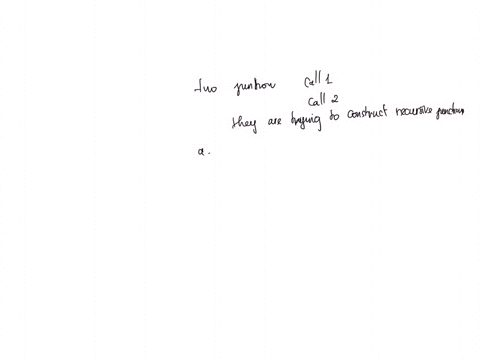 two funtion call 1
call 2
they are trying to construct recursive function
a.